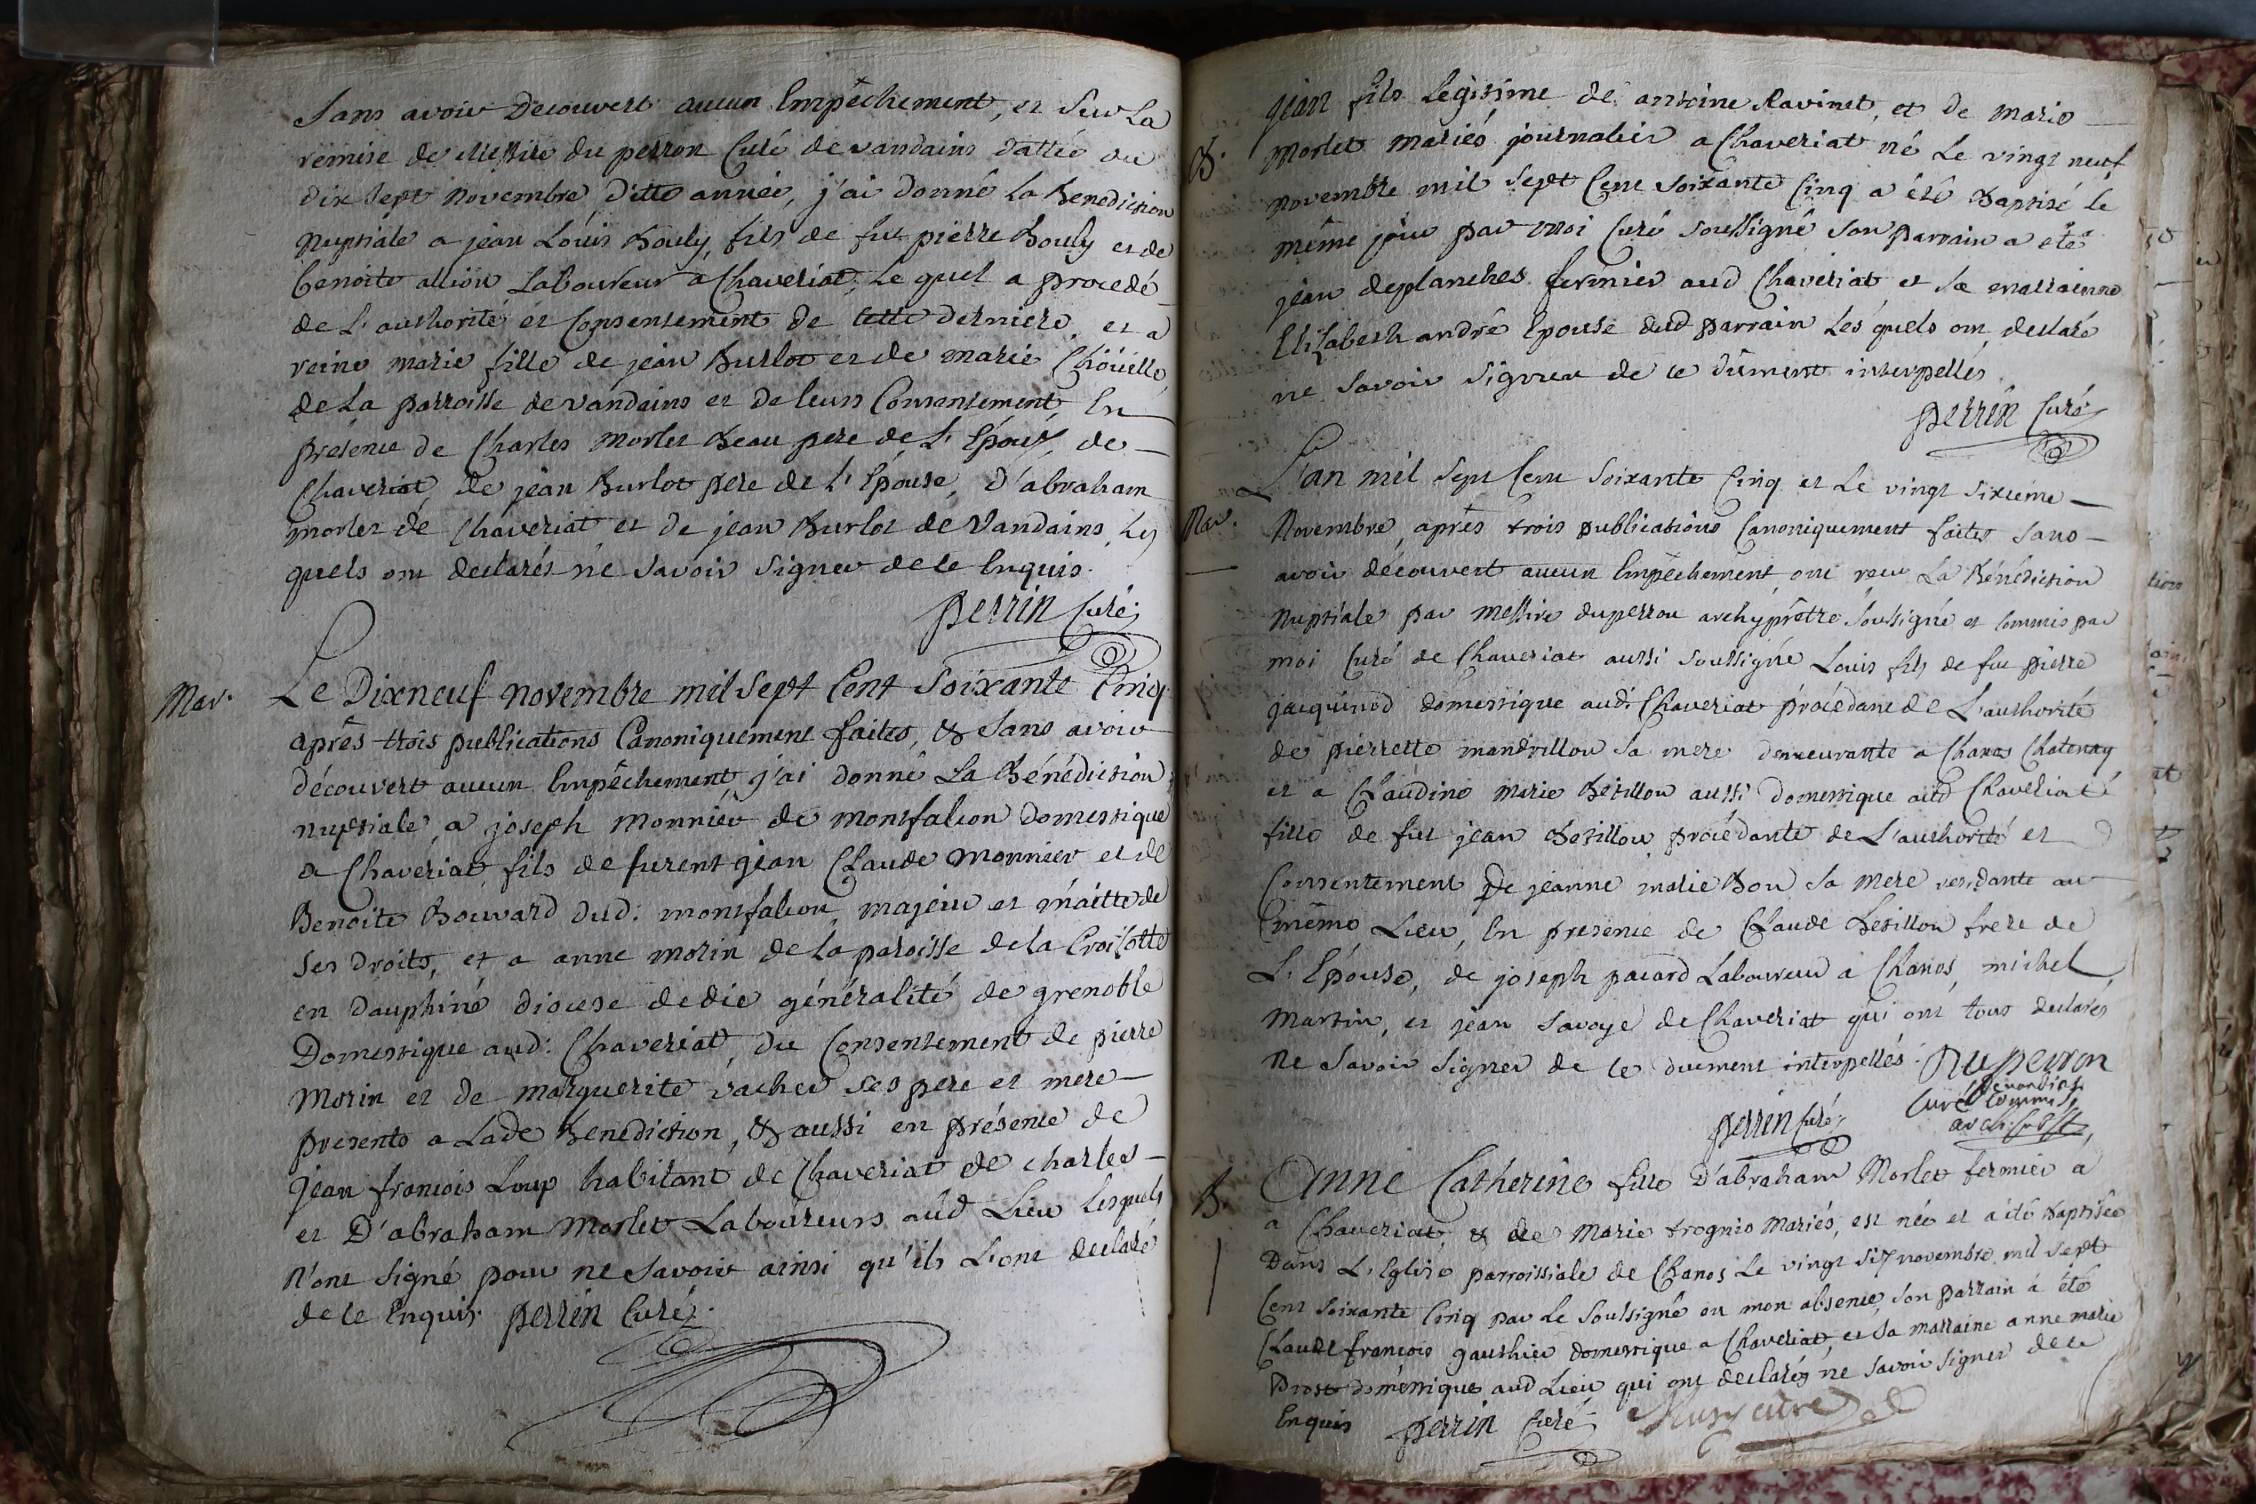 Sans avoir Decouvert aucun Empêchement, et Sur La
remise de Messire du perron Curé de vandains dattée du
dix Sept Novembre ditte année, j'ai donné La Benediction
Nuptiale a jean Louis Bouly, fils de fut pierre Bouly et de
Benoite allion Laboureur a Chaveriat, Le quel a procedé
de L'authorité et Consentement de Cette derniere, et a
reine marie fille de jean Burlot et de marie Choüelle,
de La parroisse de vandains et de leurs Consentement, En
presence de Charles Morlet Beau pere de L'Epoux, de
Chaveriat, de jean Burlot pere de L'Epouse, D'abraham
morlet de Chaveriat et de jean Burlot de Vandains, Les
quels ont declarés ne Savoir Signer de ce Enquis.
perrin Curé
Mar.
Le Dixneuf novembre mil Sept Cent Soixante Cinq
après trois publications Canoniquement faites, & Sans avoir
découvert aucun Empêchement, j'ai donné La Bénédiction
nuptiale a joseph Monnier de montfalcon Domestique
a Chaveriat fils de furent jean Claude Monnier et de
Benoite Bouvard dud: montfalcon, majeur et maitre de
Ses droits, et a anne morin de la paroisse de la Croisotte
en Dauphiné diocese de die généralité de grenoble
Domestique aud: Chaveriat, du Consentement de pierre
Morin et de marguerite vacher ses pere et mere
presents a Lade Benediction, & aussi en présence de
jean francois Loup habitant de Chaveriat de charles
et D'abraham Morlet Laboureurs aud Lieu Lesquels
N'ont Signé pour ne Savoir ainsi qu'ils L'ont declaré
de ce Enquis. perrin Curé
B.
jean fils Legitime de antoine Ravinet, et de marie
Morlet mariés journalier a Chaveriat né Le vingt neuf
novembre mil Sept Cent Soixante Cinq a été Baptisé le
même jour par moi Curé Soussigné Son parrain a été
jean deplanches fermier aud Chaveriat et Sa marrainne
Elizabeth andré Epouse dud parrain Les quels ont declaré
ne Savoir Signer de ce dûment interpellés
perrin Curé
Mar.
L'an mil Sept Cent Soixante Cinq et Le vingt Sixieme
Novembre, après trois publications Canoniquement faites Sans
avoir découvert aucun Empêchement, ont reçu La Bénédiction
Nuptiale par Messire duperron archyprêtre Soussigné et Commis par
moi Curé de Chaveriat aussi Soussigné Louis fils de fut pierre
jacquinod domestique audi Chaveriat procédant de L'authorité
de pierrette mandrillon Sa mere demeurante a Chatenay
et a Claudine marie Besillon aussi domestique aud Chaveriat
fille de fut jean Besillon procédante de L'authorité et
Consentement De jeanne marie Bon Sa Mere residante au
même Lieu, En presence de Claude Besillon frere de
L'Epouse, de joseph pacard Laboureur a Chanos, michel
Martin, et jean Savoye de Chaveriat qui ont tous declarés
ne Savoir Signer de ce duement interpellés. Duperron
Curé de vandains
commis
perrin Curé
B.
Anne Catherine fille D'abraham Morlet fermier a
a Chaveriat, & de Marie trognio Mariés, est née et a été Baptisée
Dans L'Eglise parroissiale de Chanos Le vingt Six novembre mil Sept
Cent Soixante Cinq par Le Soussigné en mon absence, Son parrain a été
Claude francois gauthier domestique a Chaveriat, et Sa marraine anne marie
Brost domestique aud Lieu qui ont declarés ne Savoir Signer de ce
Enquis perrin Curé